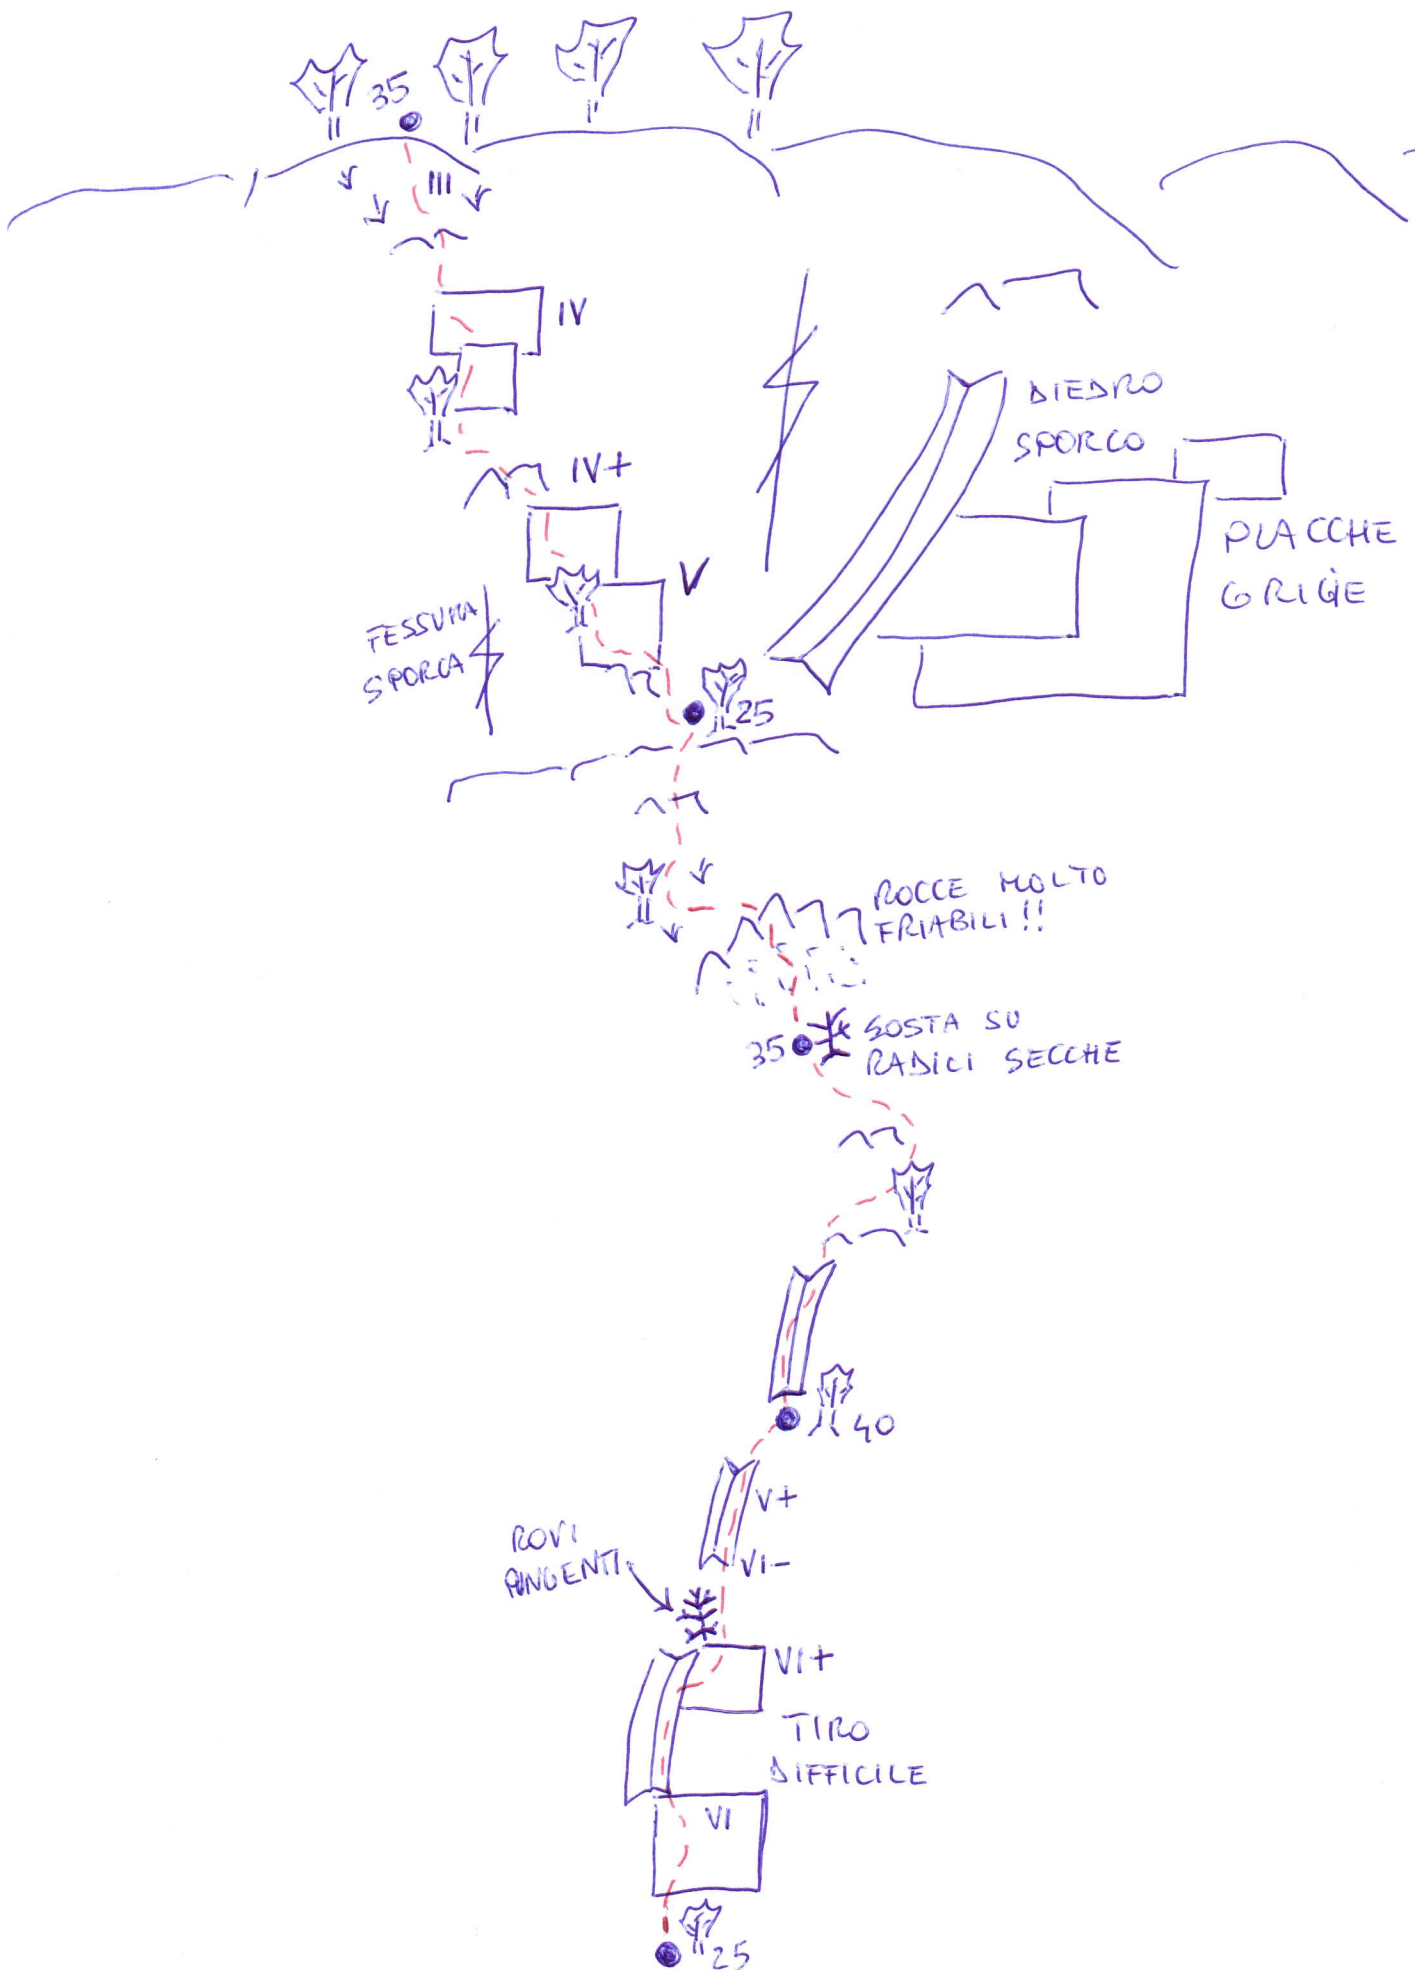 35
III
IV
DIEDRO
SPORCO
IV+
PLACCHE
GRIGIE
V
FESSURA
SPORCA
25
ROCCE MOLTO
FRIABILI!!
35
SOSTA SU
RADICI SECCHE
40
V+
ROVI
PUNGENTI
VI-
VI+
TIRO
DIFFICILE
VI
25